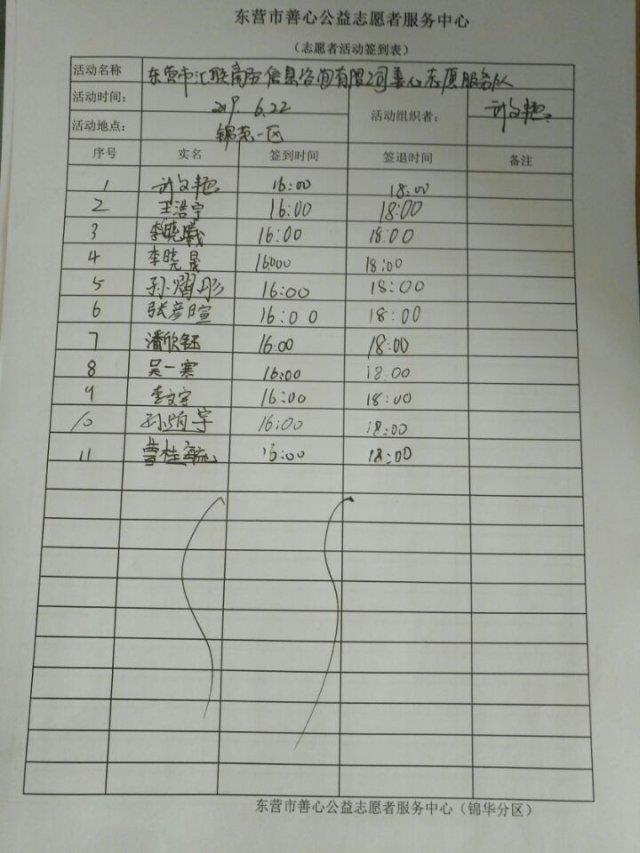 东营市善心公益志愿者服务中心
（志愿者活动签到表）
活动名称 东营市汇联商务信息咨询有限公司善心志愿服务队
活动时间： 2019 6.22 活动组织者： 许文艳
活动地点： 锦苑一区
序号 实名 签到时间 签退时间 备注
1 许文艳 16:00 18:00
2 王浩宇 16:00 18:00
3 李晓曦 16:00 18:00
4 李晓昱 16:000 18:00
5 孙熠彤 16:00 18:00
6 张彦暄 16:00 18:00
7 潘欣钰 16:00 18:00
8 吴一寒 16:00 18:00
9 李文宇 16:00 18:00
10 孙 宇 16:00 18:00
11 曹桂 16:00 18:00
东营市善心公益志愿者服务中心（锦华分区）